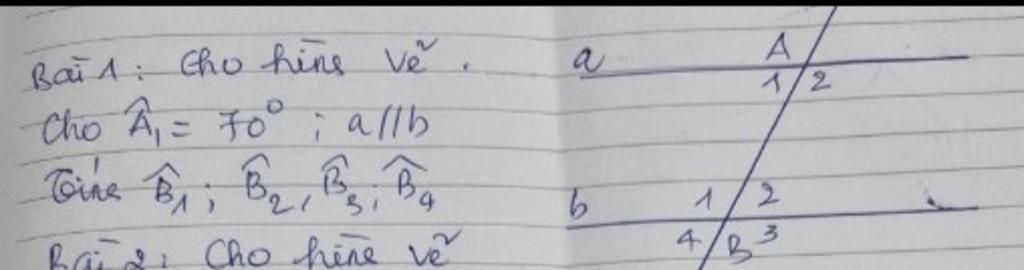 Bài 1: Cho hình vẽ.
Cho Â₁ = 70° ; a//b
Tính B̂₁; B̂₂, B̂₃; B̂₄
Bài 2: Cho hình vẽ
a A
1 2
b 1 2
4 B 3